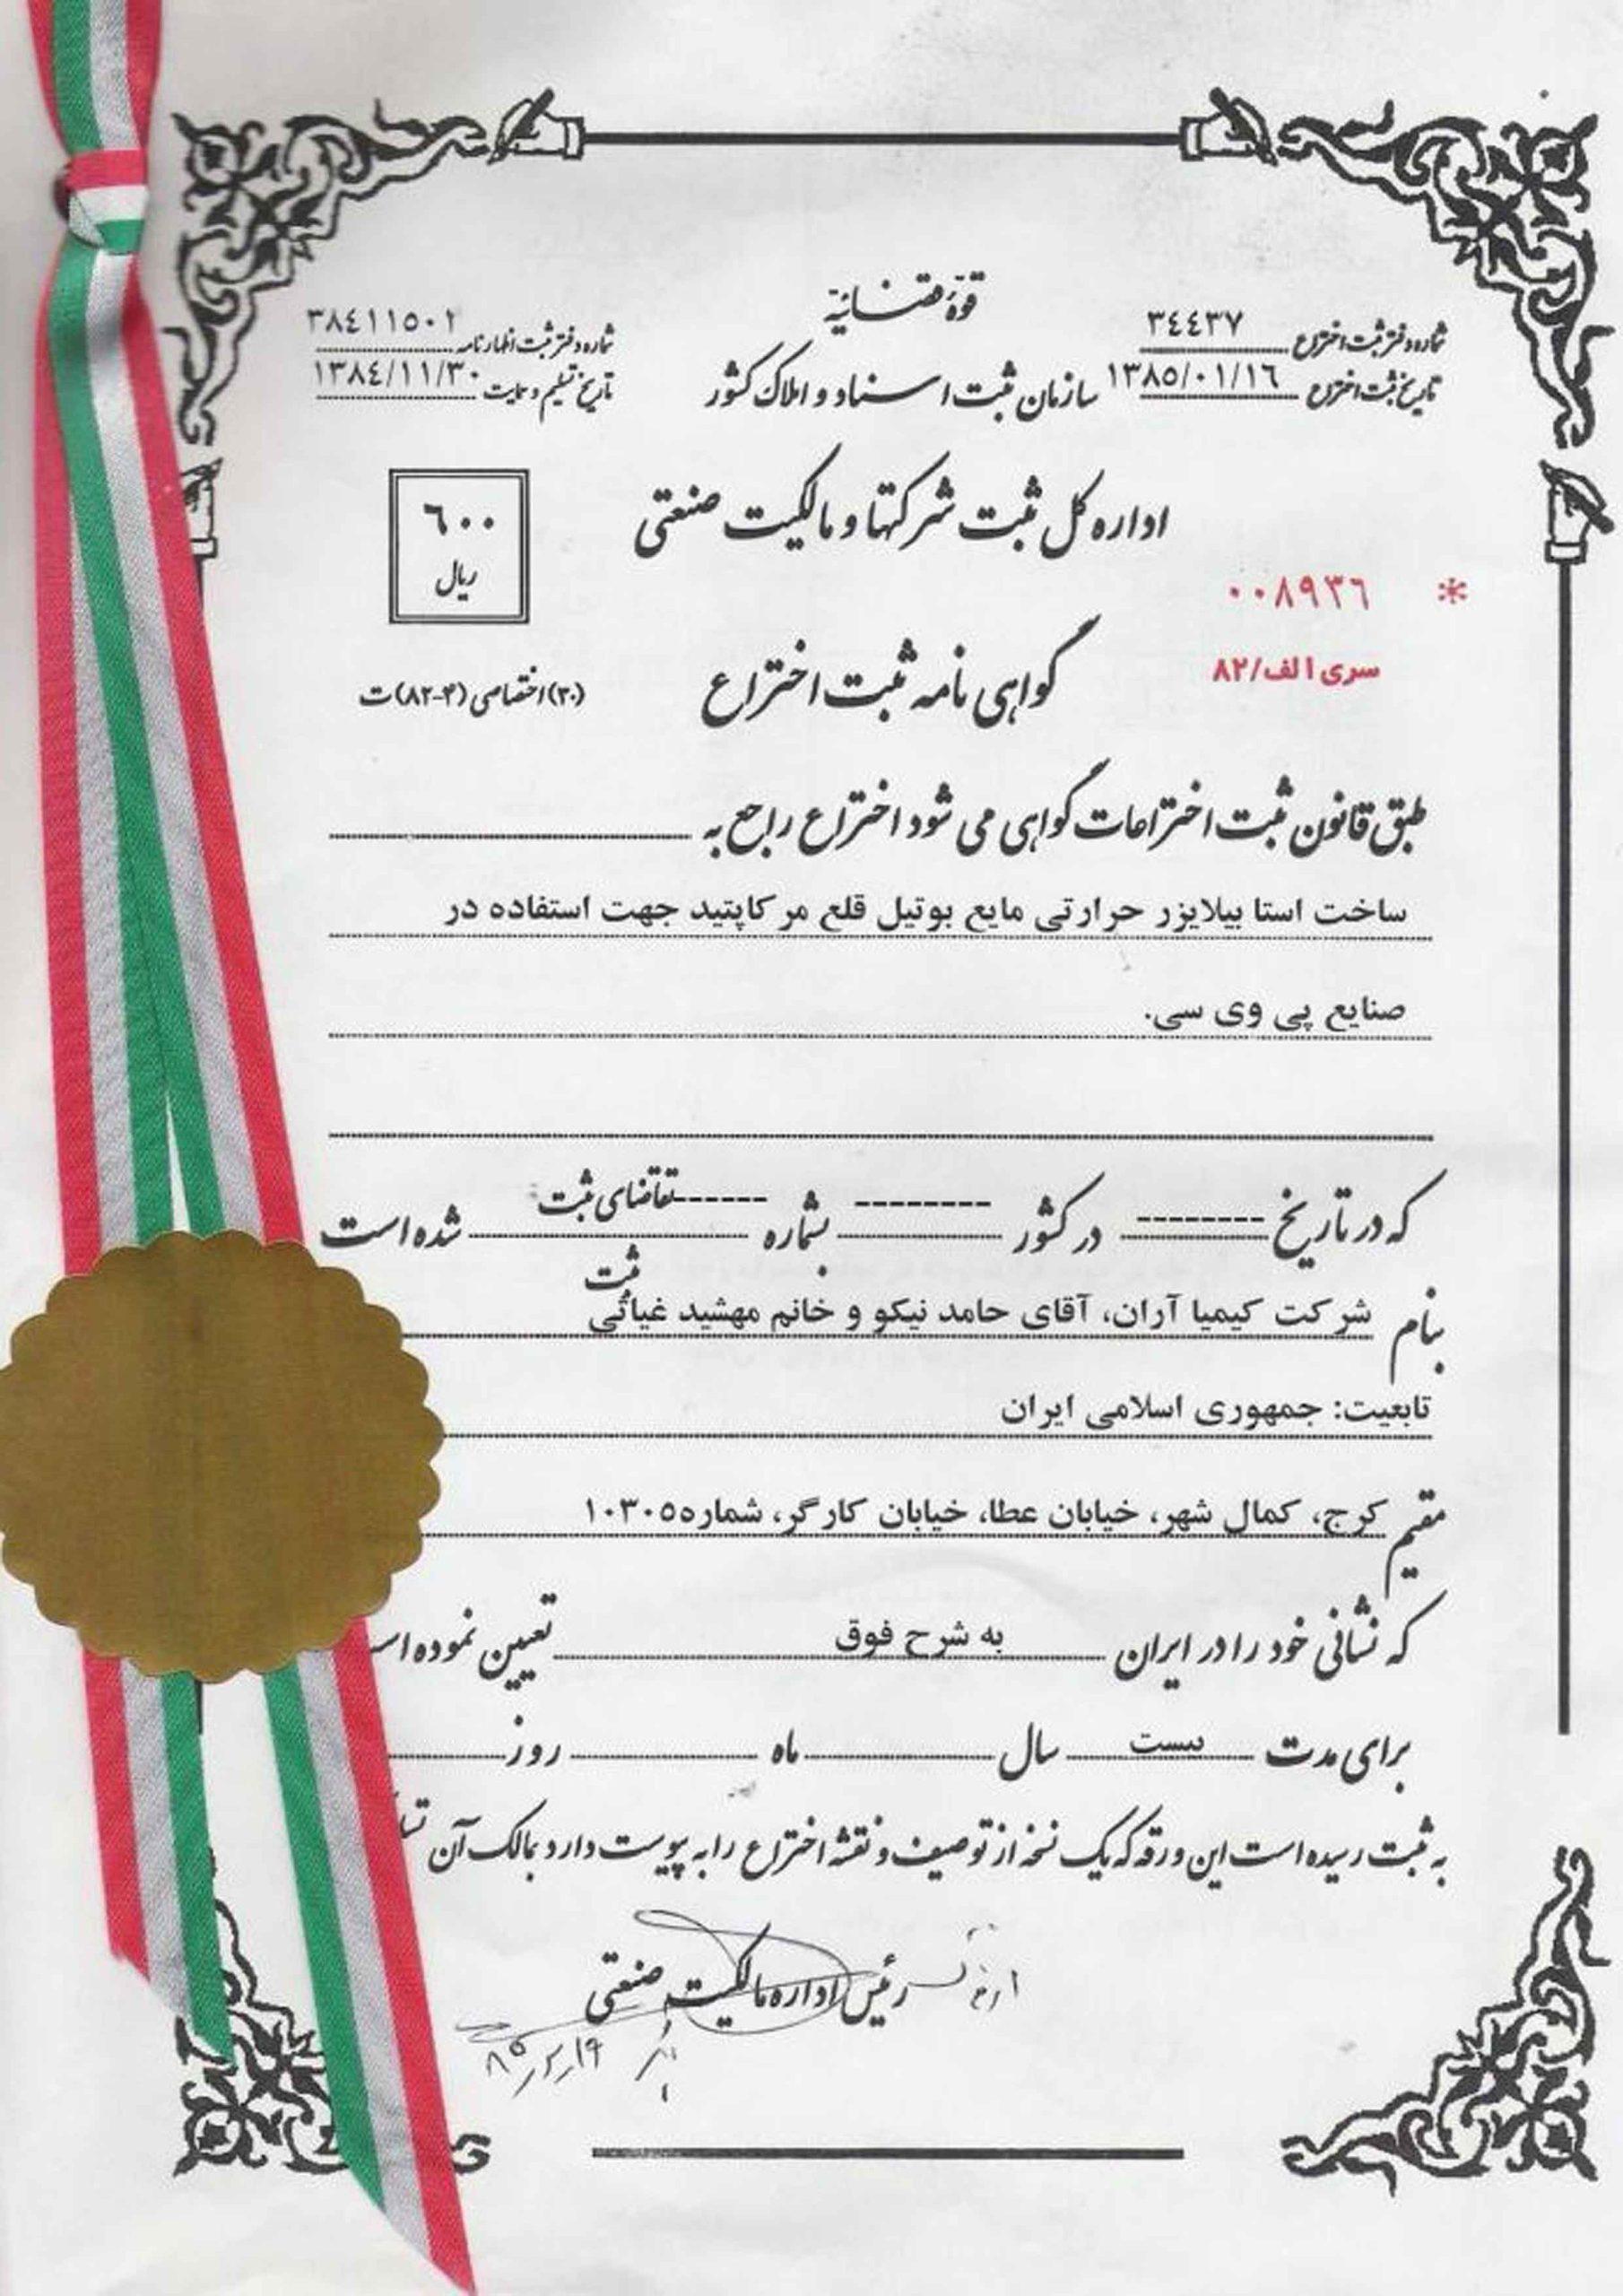 قوهٔ قضائیه
شماره دفتر ثبت اختراع ٣٤٤٣٧
شماره دفتر ثبت اظهارنامه ٣٨٤١١٥٠١
سازمان ثبت اسناد و املاک کشور
تاریخ ثبت اختراع ١٣٨٥/٠١/١٦
تاریخ تسلیم و حمایت ١٣٨٤/١١/٣٠
اداره کل ثبت شرکتها و مالکیت صنعتی
٦٠٠
ریال
* ٠٠٨٩٣٦
سری الف/۸۲
گواهی نامه ثبت اختراع
(۳۰) اختصاصی (۴-۸۲) ت
طبق قانون ثبت اختراعات گواهی می شود اختراع راجع به
ساخت استا بیلایزر حرارتی مایع بوتیل قلع مرکاپتید جهت استفاده در
صنایع پی وی سی.
که در تاریخ -------- در کشور -------- بشماره ------ تقاضای ثبت شده است
ثبت
بنام شرکت کیمیا آران، آقای حامد نیکو و خانم مهشید غیاثی
تابعیت: جمهوری اسلامی ایران
مقیم کرج، کمال شهر، خیابان عطا، خیابان کارگر، شماره ١٠٣٠٥
که نشانی خود را در ایران به شرح فوق تعیین نموده ا
برای مدت بیست سال ماه روز
به ثبت رسیده است این ورقه که یک نسخه از توصیف و نقشه اختراع را به پیوست دارد بمالک آن
رئیس اداره مالکیت صنعتی